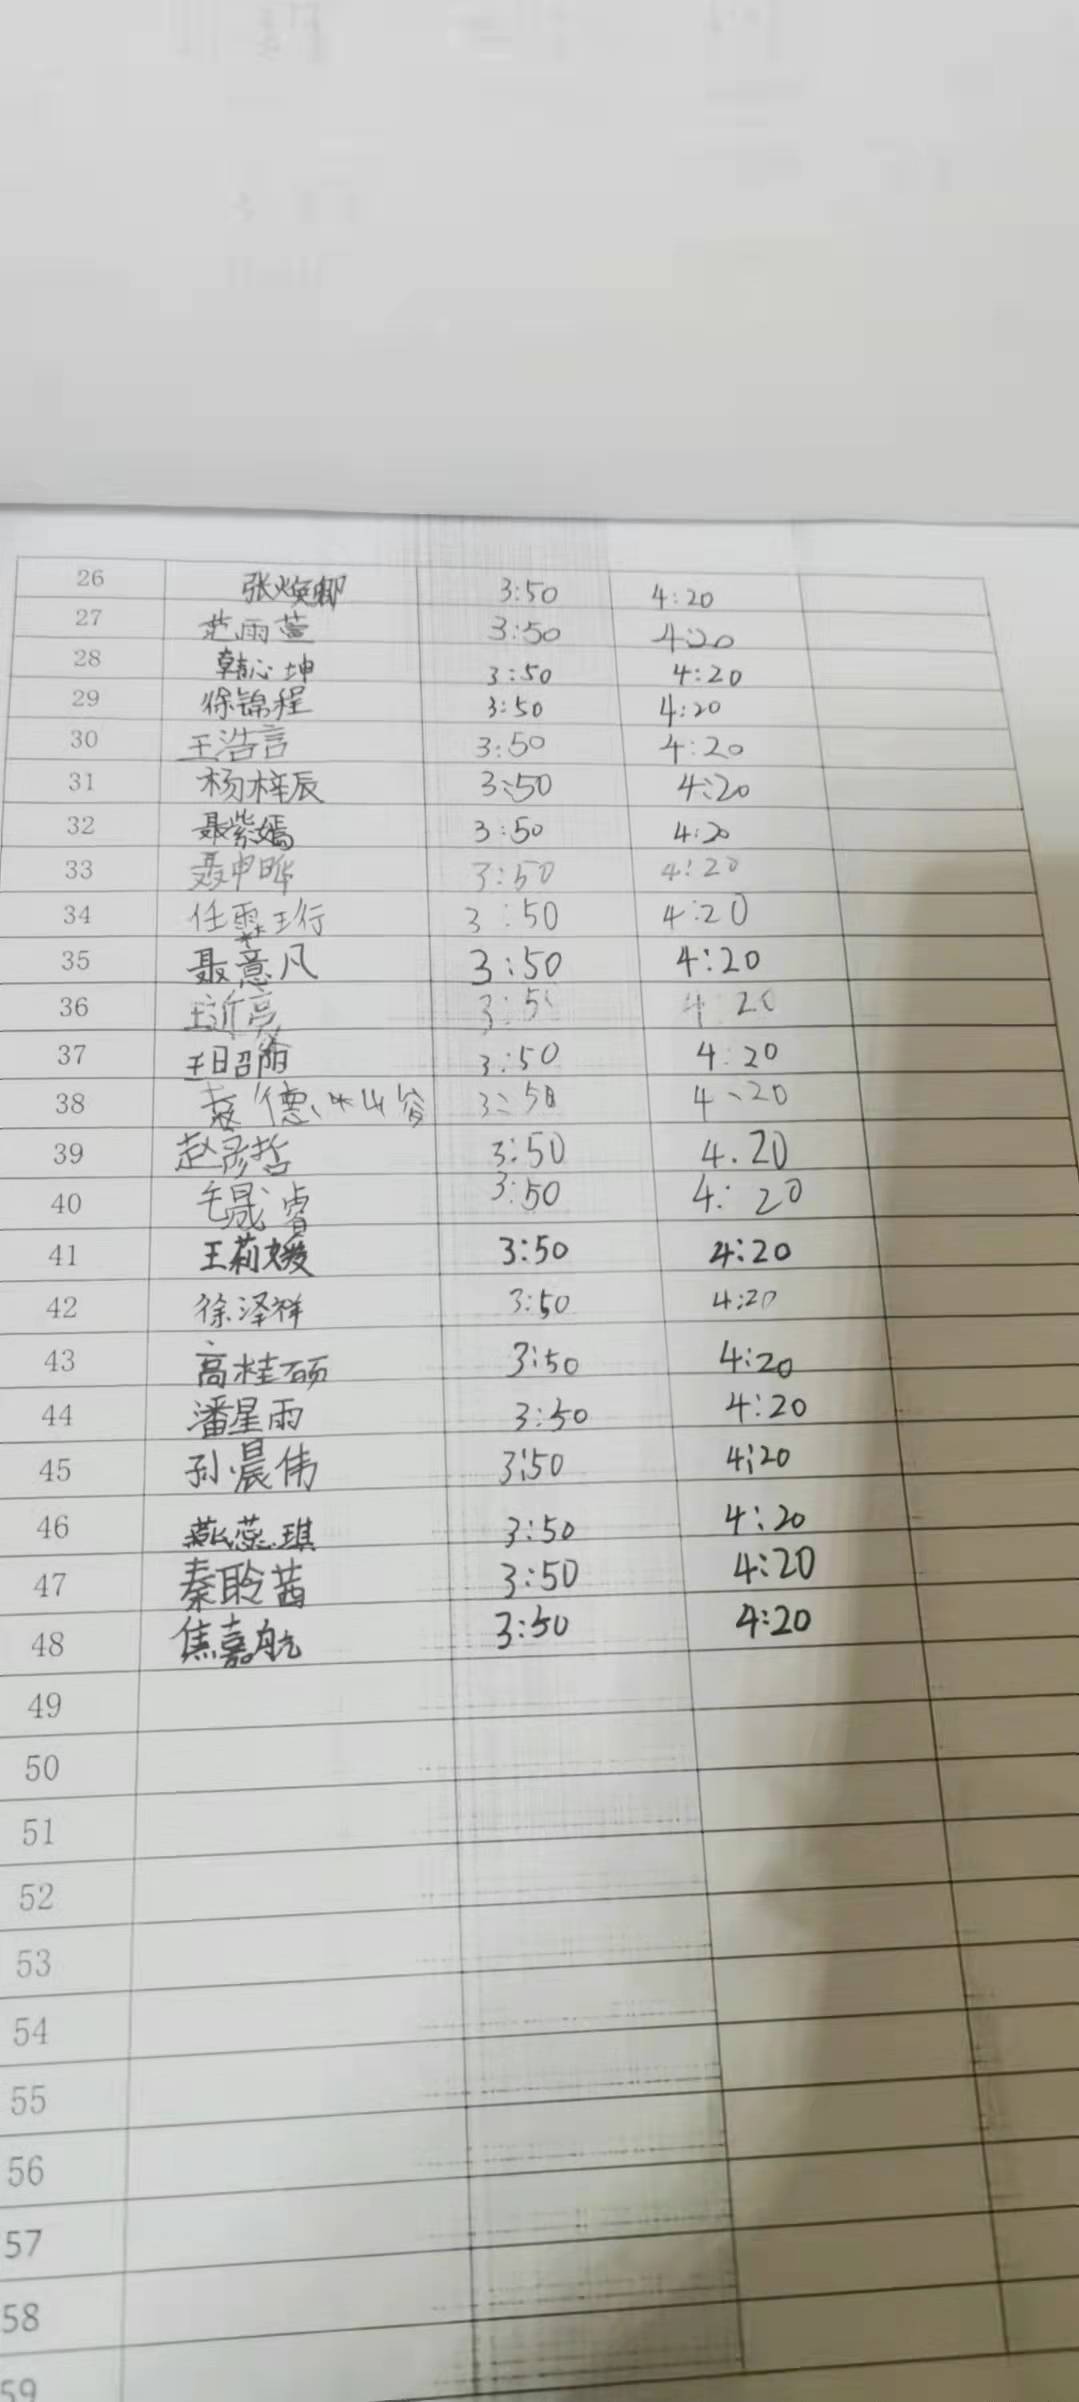 26 张焕卿 3:50 4:20
27 范雨萱 3:50 4:20
28 韩心坤 3:50 4:20
29 徐锦程 3:50 4:20
30 王浩言 3:50 4:20
31 杨梓辰 3:50 4:20
32 聂紫嫣 3:50 4:20
33 聂申晔 3:50 4:20
34 任 3:50 4:20
35 聂意凡 3:50 4:20
36 4:20
37 王昭阳 3:50 4:20
38 3:50 4:20
39 赵彦哲 3:50 4.20
40 毛晟睿 3:50 4:20
41 王莉媛 3:50 4:20
42 徐泽祥 3:50 4:20
43 高桂硕 3:50 4:20
44 潘星雨 3:50 4:20
45 孙晨伟 3:50 4:20
46 燕蕊琪 3:50 4:20
47 秦聆茜 3:50 4:20
48 焦嘉航 3:50 4:20
49
50
51
52
53
54
55
56
57
58
59